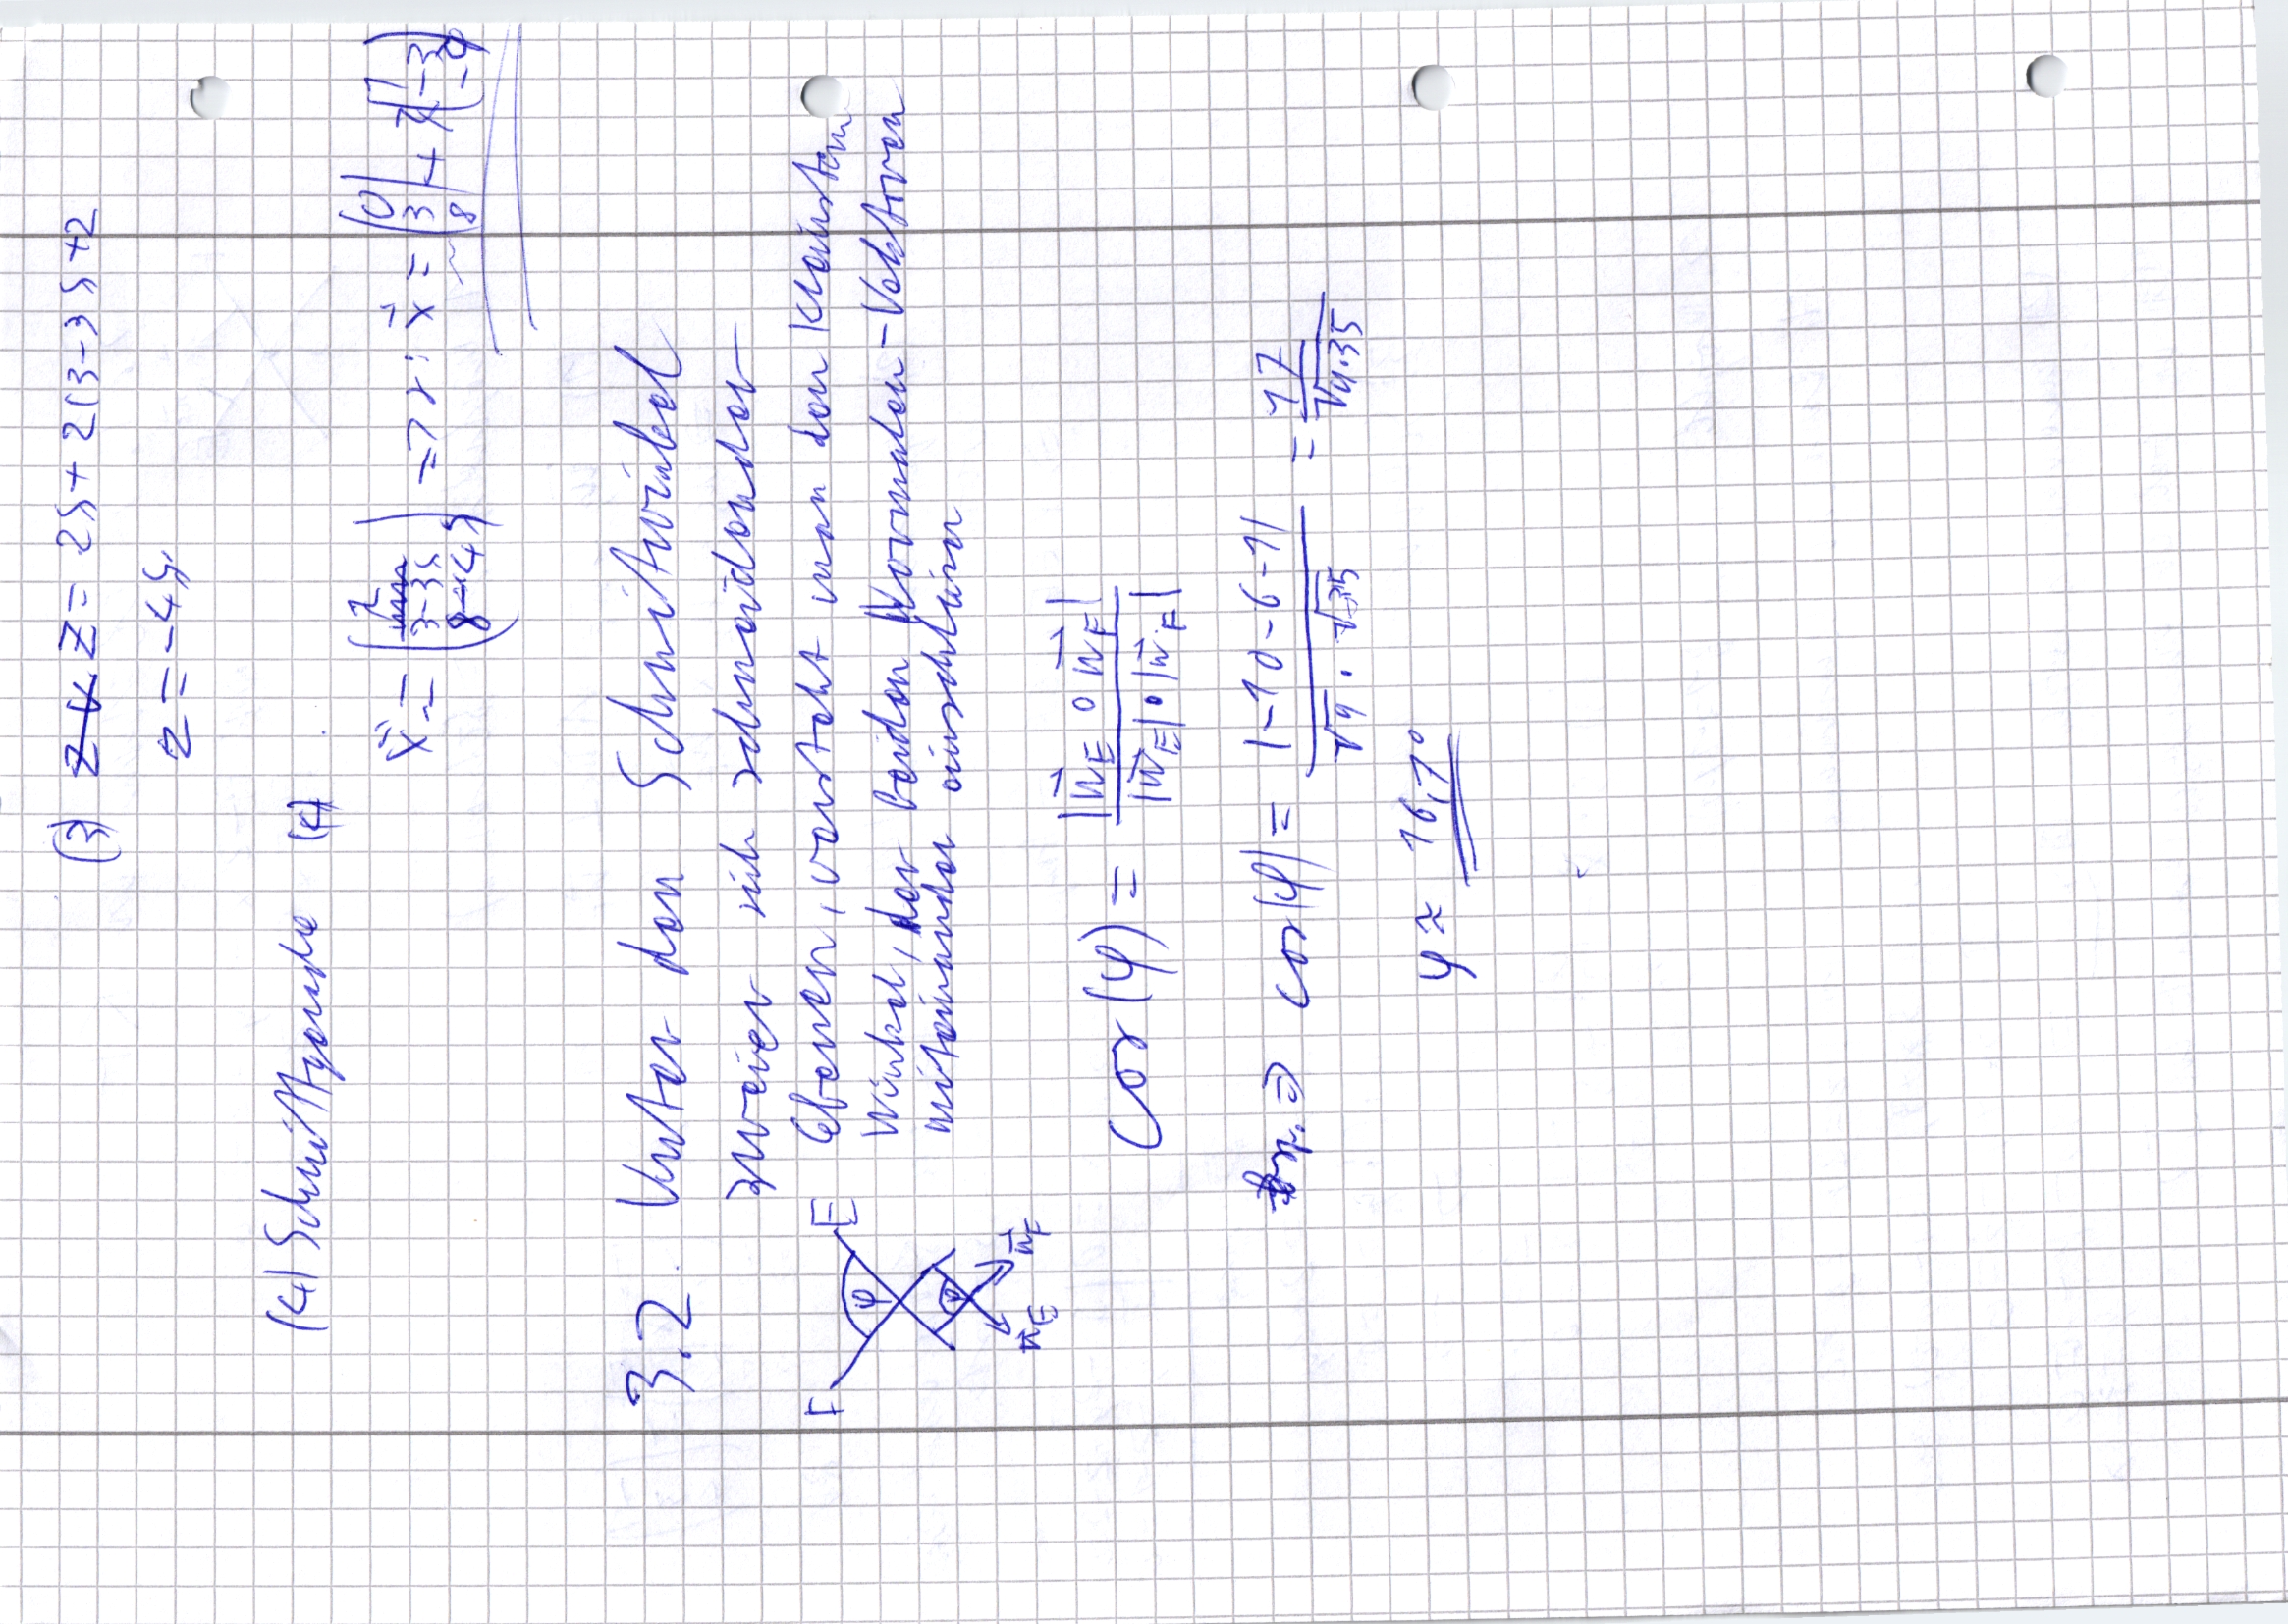 (3) z = 2s + 2(3-3s+2
z = -4s
(4) Schnittgerade
x⃗ = ( 3-3s 8-4s ) => r: x⃗ = (0 3 8) + (1 -3 -4)
3.2 Unter den Schnittwinkel
zweier sich schneidender
Ebenen, versteht man den kleinsten
Winkel, der beiden Normalen-Vektoren
miteinander einschließen
F E φ φ n⃗E n⃗F
cos(φ) = |n⃗E ∘ n⃗F| / |n⃗E| ∘ |n⃗F|
=> cos(φ) = |-10-6-1| / √9 · √35 = 17 / √9·35
φ ≈ 16,7°